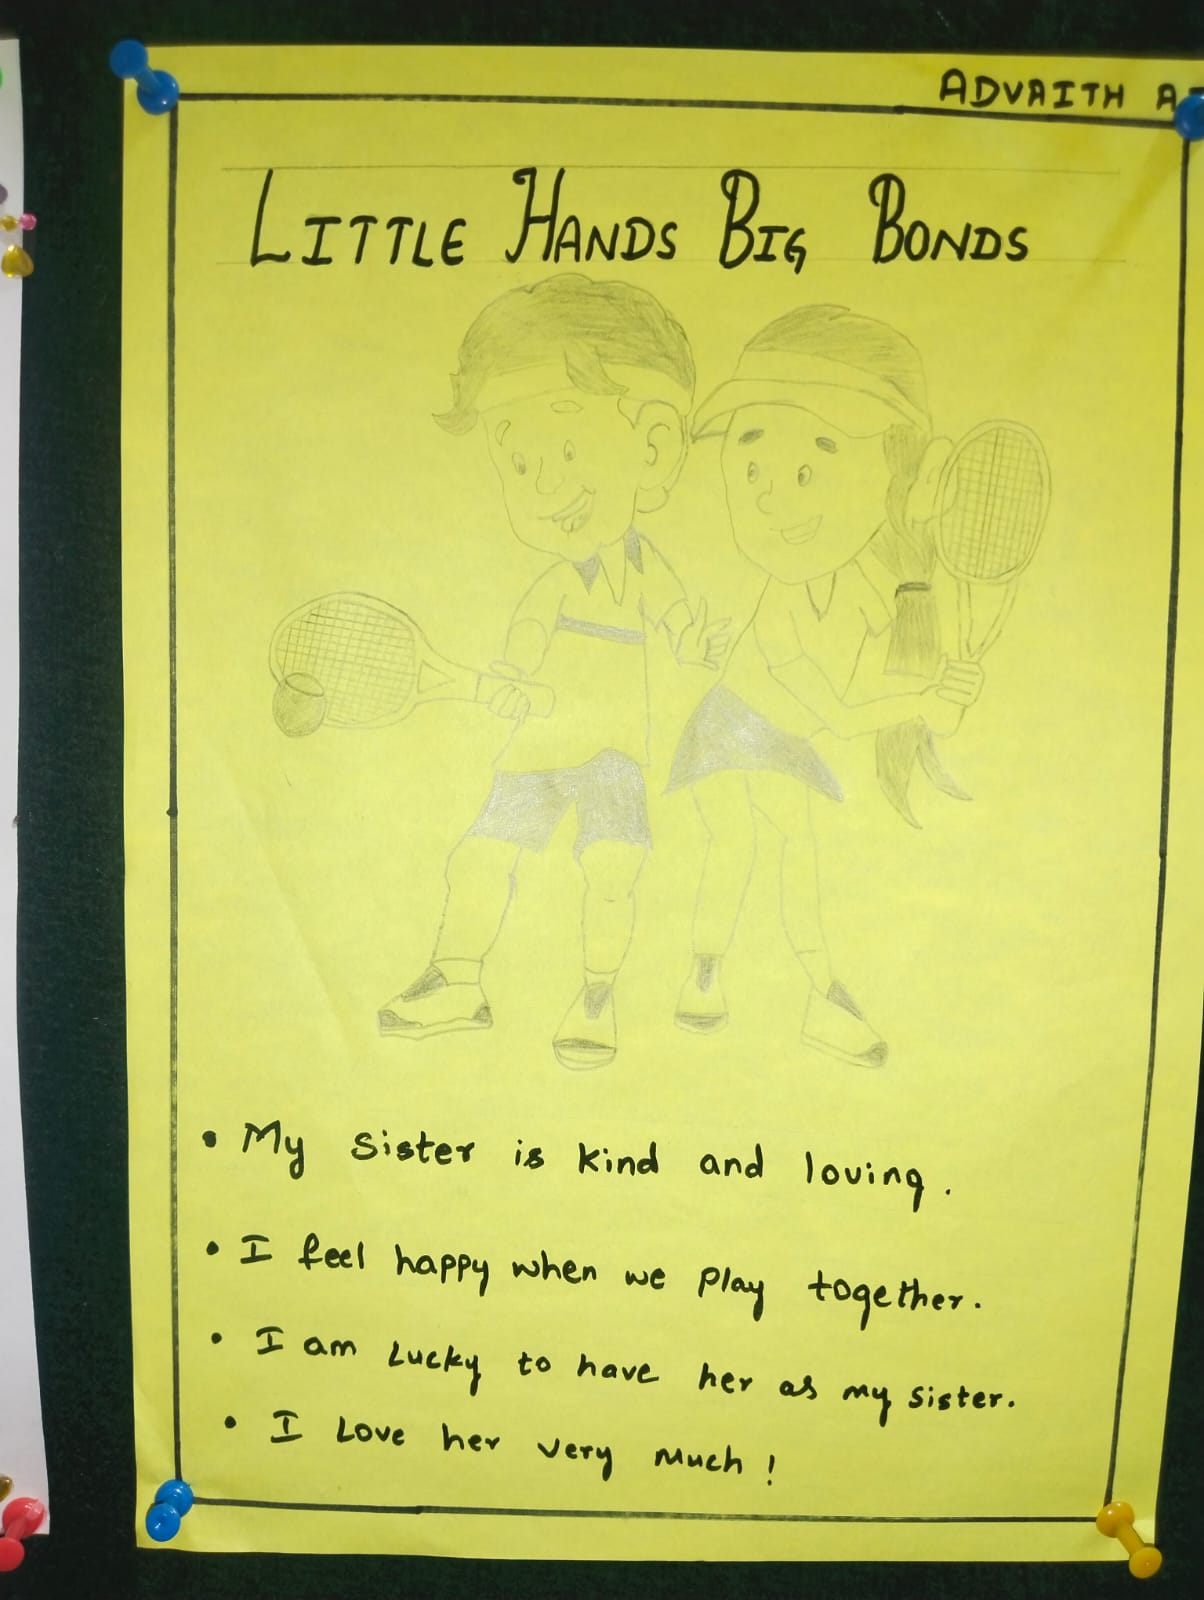 ADVAITH
LITTLE HANDS BIG BONDS
• My sister is kind and loving.
• I feel happy when we play together.
• I am Lucky to have her as my sister.
• I Love her very much!